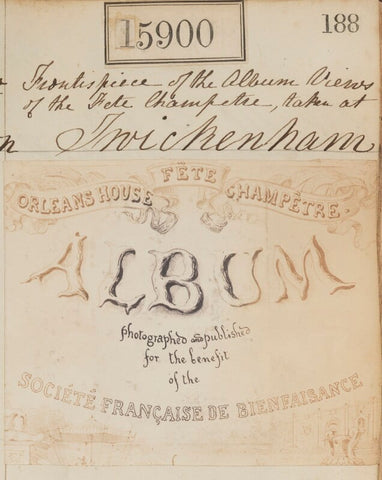 15900
188
Frontispiece of the Album Views
of the Fete Champetre, taken at
Twickenham
FÊTE
ORLEANS HOUSE CHAMPÊTRE
ALBUM
photographed and published
for the benefit
of the
SOCIÉTÉ FRANÇAISE DE BIENFAISANCE